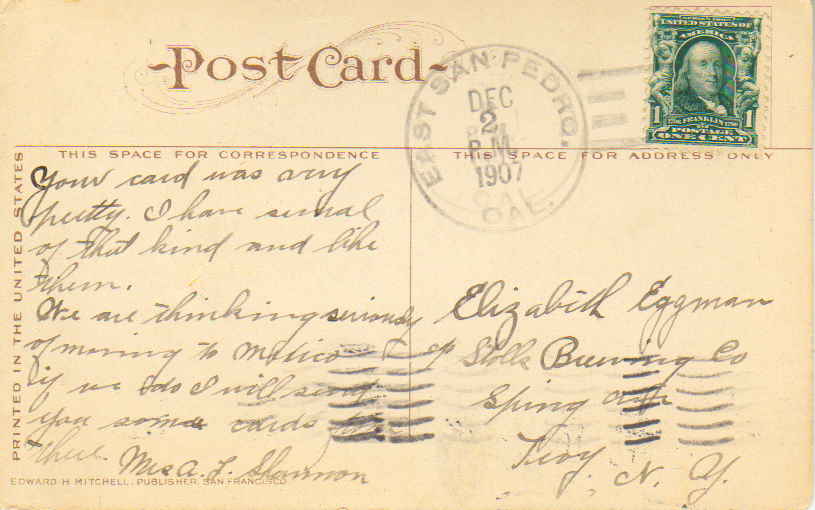 Post Card
EAST SAN PEDRO,
DEC
2
P.M.
1907
CAL.
SERIES 1902
UNITED STATES OF
AMERICA
1 FRANKLIN 1
POSTAGE
ONE CENT
THIS SPACE FOR CORRESPONDENCE
THIS SPACE FOR ADDRESS ONLY
PRINTED IN THE UNITED STATES
Your card was very
pretty. I have several
of that kind and like
them.
We are thinking seriously
of moving to Mexico
if we do I will send
you some cards from
there. Mrs A. F. Shannon
Elizabeth Eggman
℅ Stolls Brewing Co
Spring Ave
Troy
N. Y.
EDWARD H. MITCHELL, PUBLISHER, SAN FRANCISCO